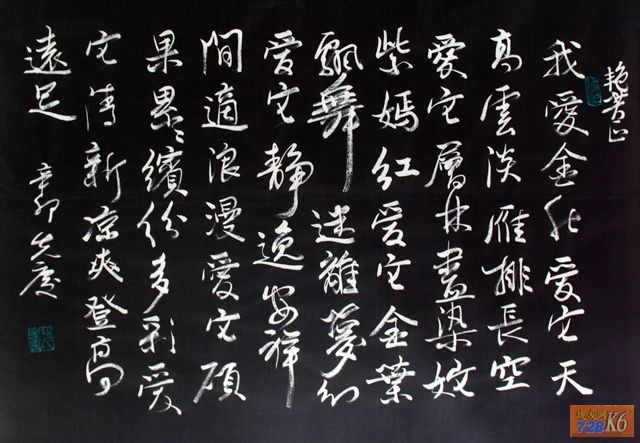 艳芳正
我愛金秋愛它天
高雲淡雁排長空
愛它層林盡染姹
紫嫣紅愛它金葉
飄舞迷離夢幻
愛它靜逸安祥
閒適浪漫愛它碩
果累々繽份多彩愛
它清新凉爽登高
遠足
辛卯 允慶
战友网
728K6